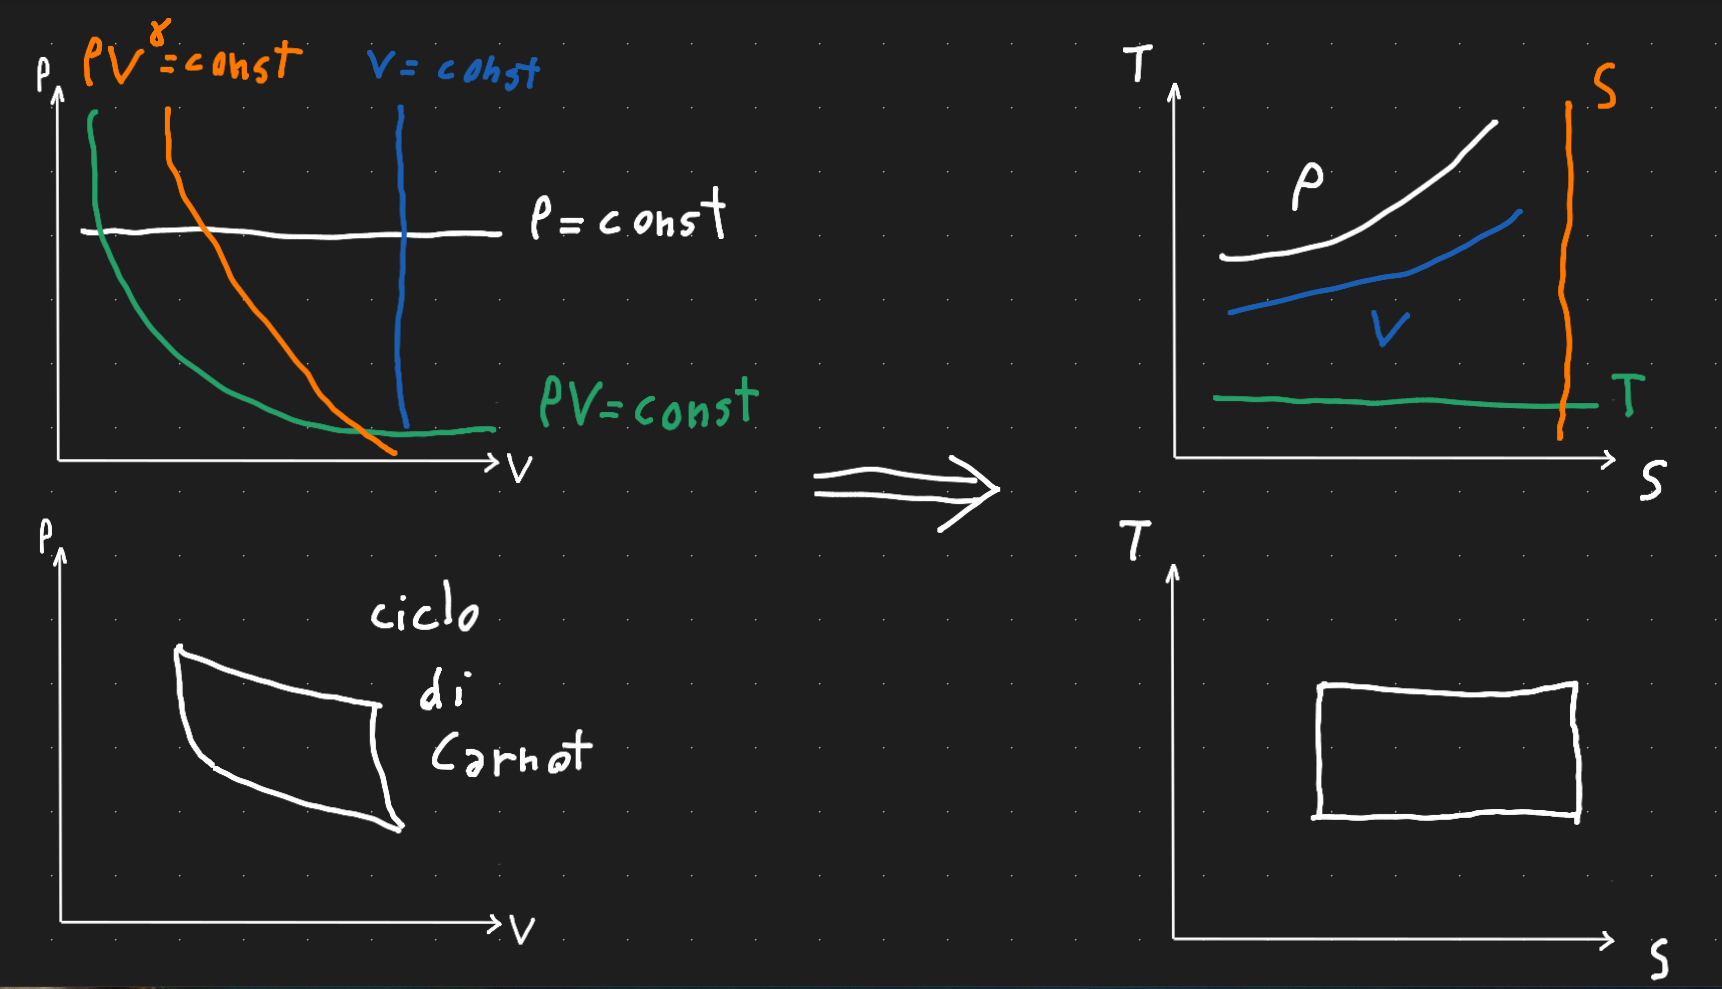 PV^γ = const
V = const
P
P = const
PV = const
V
T
S
P
V
T
S
P
ciclo
di
Carnot
V
T
S